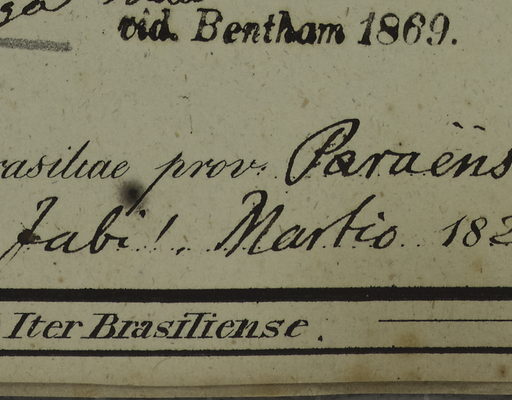 vid. Bentham 1869.
rasiliae prov. Paraëns
Habi!. Martio 182
Iter Brasiliense.